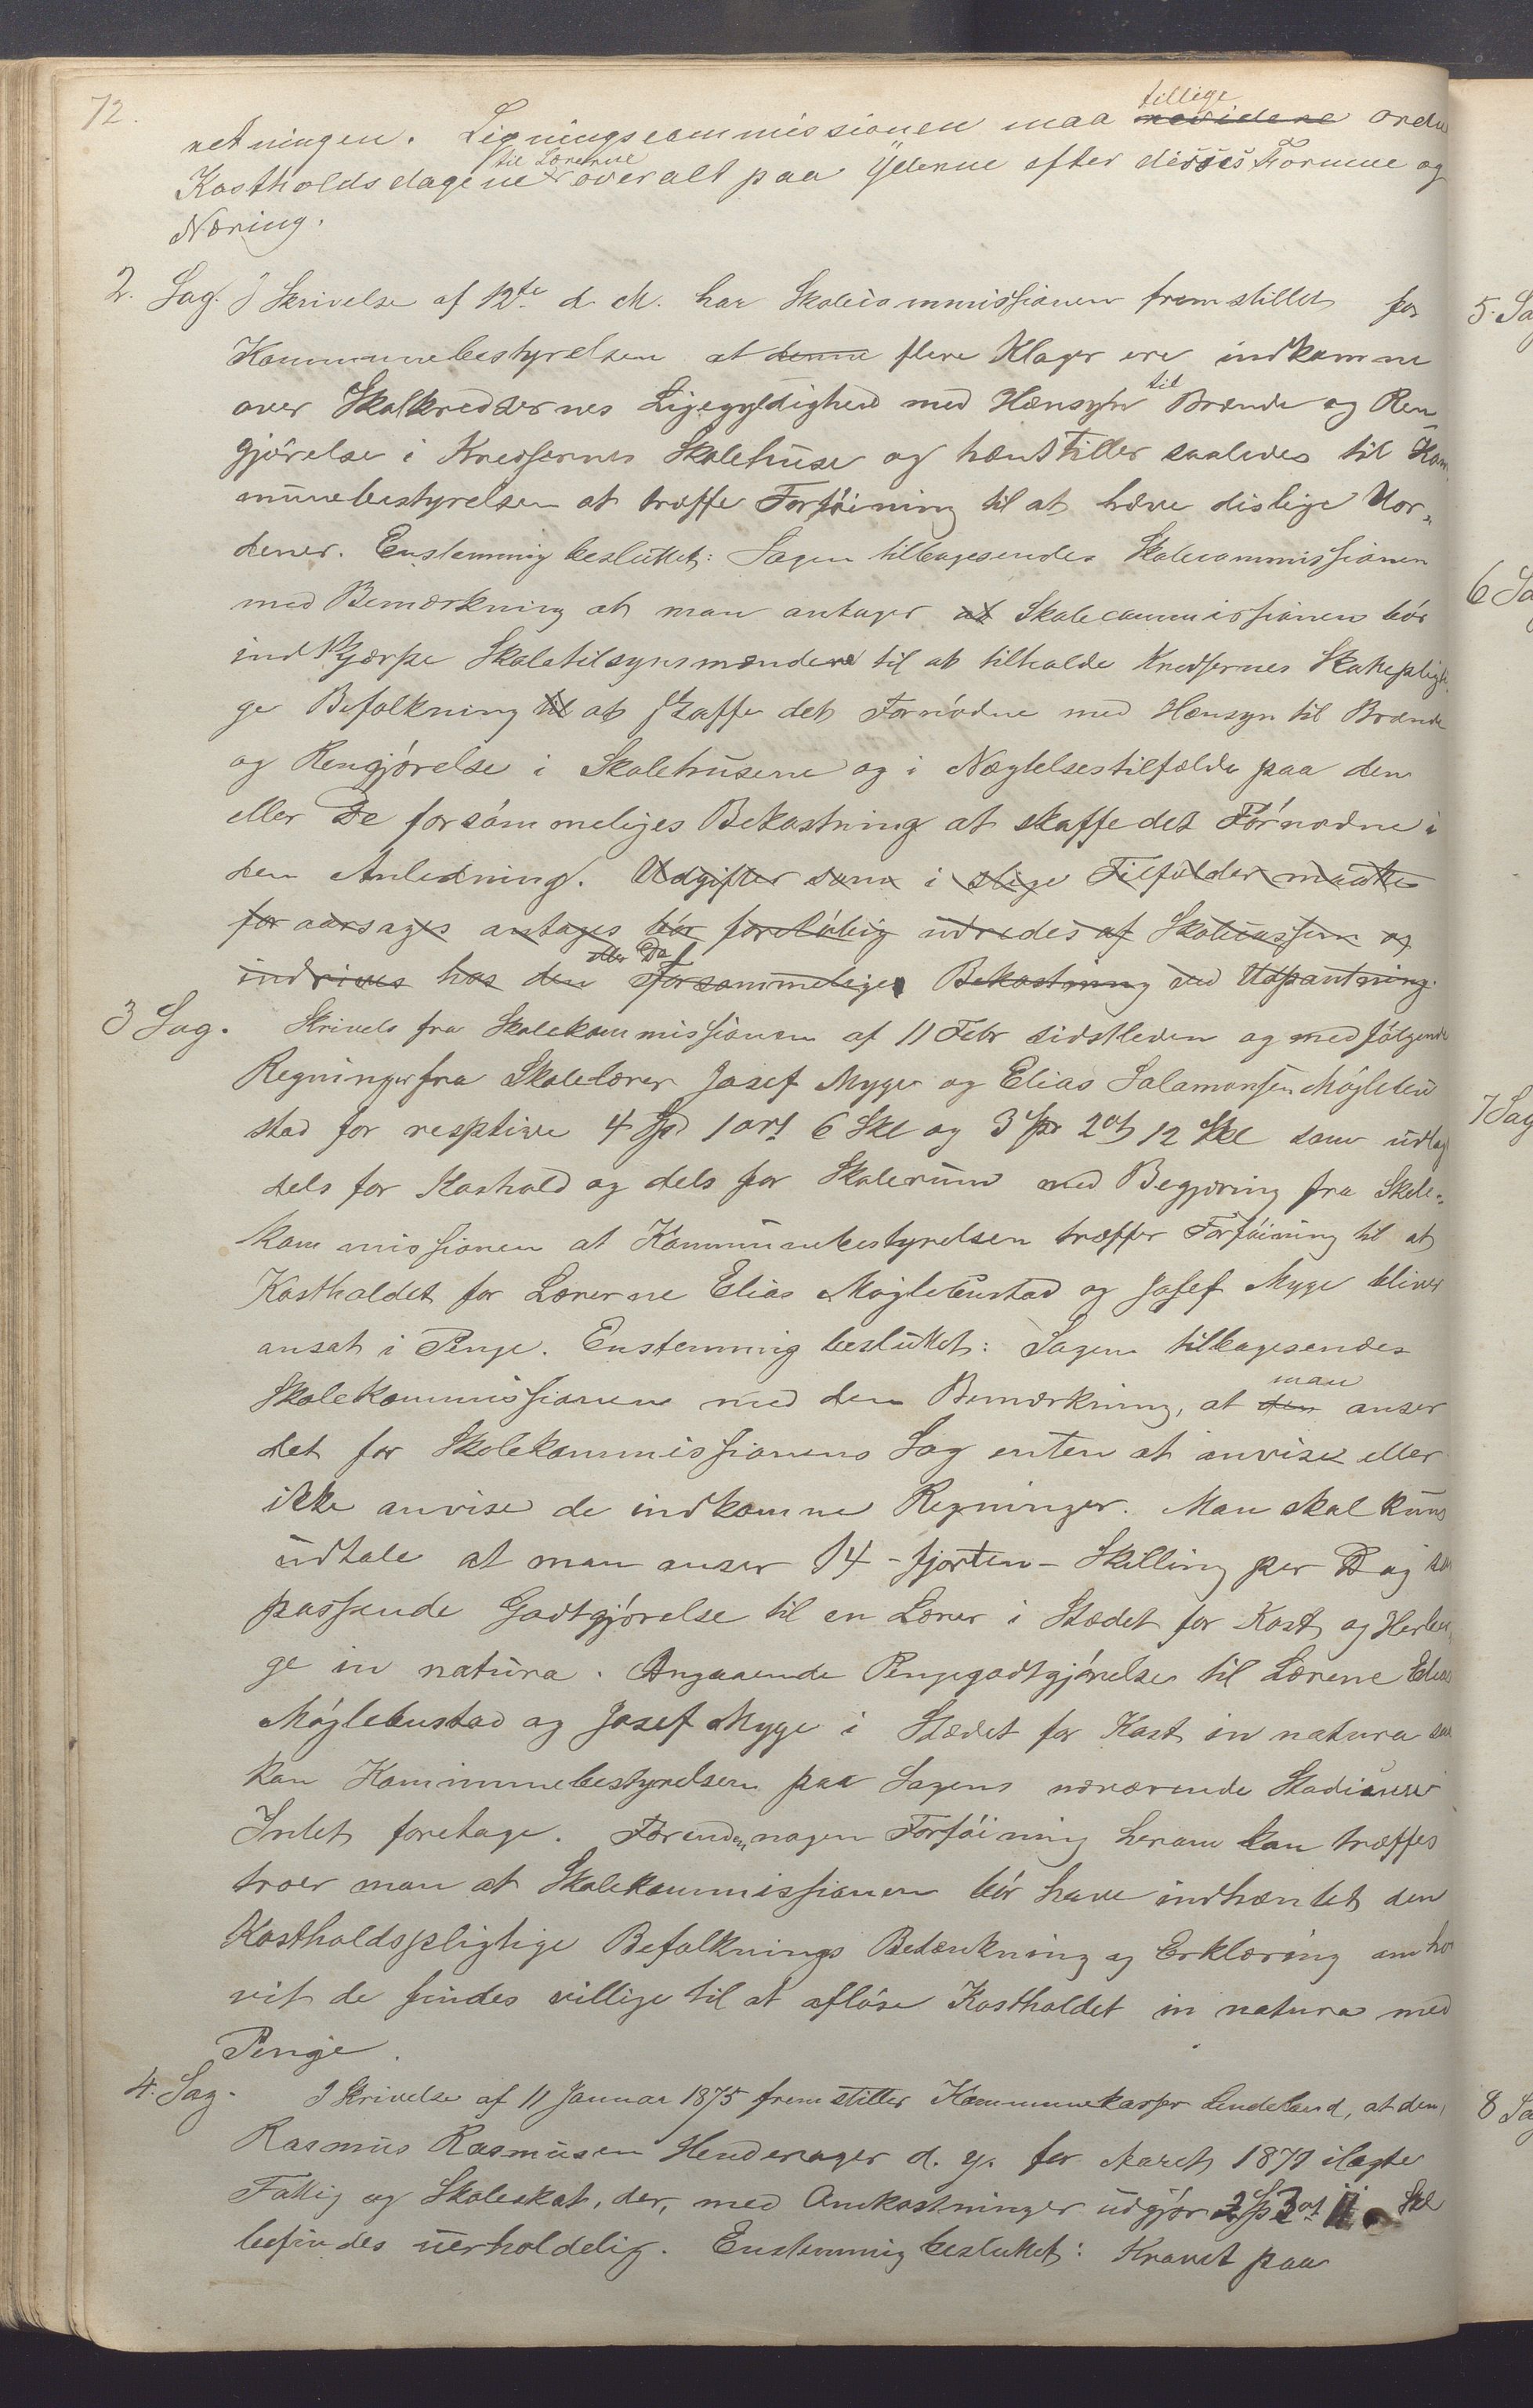 72.
tillige
retningen. Ligningscommissionen maa revidere ordne
til Lærerne
Kostholdsdagene overalt paa Yderne efter disses Formue og
Næring.
2. Sag. I Skrivelse af 12te d. M. har Skolecommissionen fremstillet for
Kommunebestyrelsen at denne flere Klager ere indkomne
til
over Skolkredsernes Ligegyldighed med Hensyn Brænde og Ren-
gjörelse i Kredsernes Skolehuse og henstiller saaledes til Kom-
munebestyrelsen at træffe Forföining til at hæve deslige Uor-
dener. Enstemmig besluttet: Sagen tilbagesendes Skolecommissionen
med Bemærkning at man antager at Skolecommissionen bör
indskjærpe Skoletilsynsmændene til at tilholde Kredsernes Skatepligti-
ge Befolkning til at skaffe det Fornödne med Hensyn til Brænde
og Rengjörelse i Skolehusene og i Nægtelsestilfælde paa den
eller De forsömmeliges Bekostning at skaffe det Fórnödne i
den Anledning. Udgifter som i slige Tilfælder maatte
foraarsages antages bör forelöbig udredes af Skolecassen og
eller De
indrives hos den Forsömmeliges Bekostning ved Udpantning.
3 Sag. Skrivels fra Skolekommissionen af 11 Febr sidstleden og medfölgende
Regninger fra Skolelærer Josef Myge og Elias Salamonsen Möglebu
stad for resptive 4 Spd 1 ort 6 Skl og 3 Spd 2 ort 12 Skl som udlagt
dels for Kosthold og dels for Skolerum med Begjæring fra Skole-
kommissionen at Kommunebestyrelsen træffer Forföining til at
Kostholdet for Lærerne Elias Möglebustad og Josef Myge bliver
ansat i Penge. Enstemmig besluttet: Sagen tilbagesendes
man
Skolekommissionen med den Bemærkning, at den anser
det for Skolekommissionens Sag enten at anvise eller
ikke anvise de indkomne Regninger. Man skal kuns
udtale at man anser 14 - fjorten - Skilling per Dag som
passende Godtgjörelse til en Lærer i Stædet for Kost og Herber-
ge in natura. Angaaende Pengegodtgjörelse til Lærene Elias
Möglebustad og Josef Myge i Stædet for Kost in natura saa
kan Kommunebestyrelsen paa Sagens nærværende Stadium
Intet foretage. Forenden nogen Forföining herom kan træffes
troer man at Skolekommissionen bör have indhentet den
Kostholdspligtige Befolknings Betænkning og Erklæring om hvor
vit de findes villige til at aflöse Kostholdet in natura med
Penge.
4. Sag. I Skrivelse af 11 Januar 1875 fremstiller Kommunekasser Lindeland, at den,
Rasmus Rasmusen Henderager d. y. for Aaret 1871 ilagte
Fattig og Skoleskat, der, med Omkostninger udgjör 2 Sp 3 ort 11 Skl
befindes uerholdelig. Enstemmig besluttet: Kravet paa
5. Sa
6 Sa
7 Sag
8 Sa